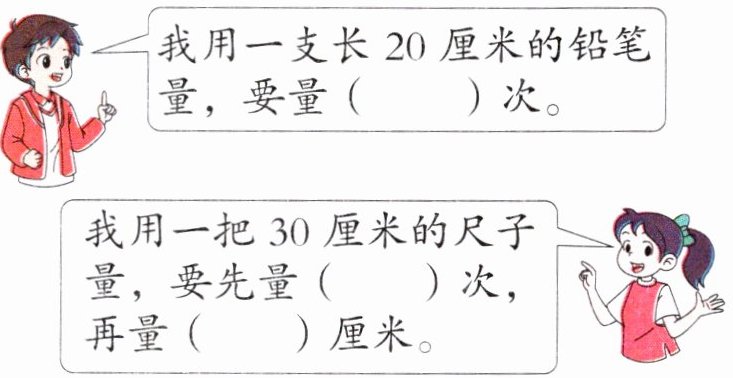 我用一支长 20 厘米的铅笔
量，要量（　　）次。
我用一把 30 厘米的尺子
量，要先量（　　）次，
再量（　　）厘米。